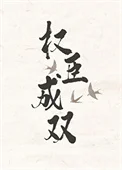 权臣成双